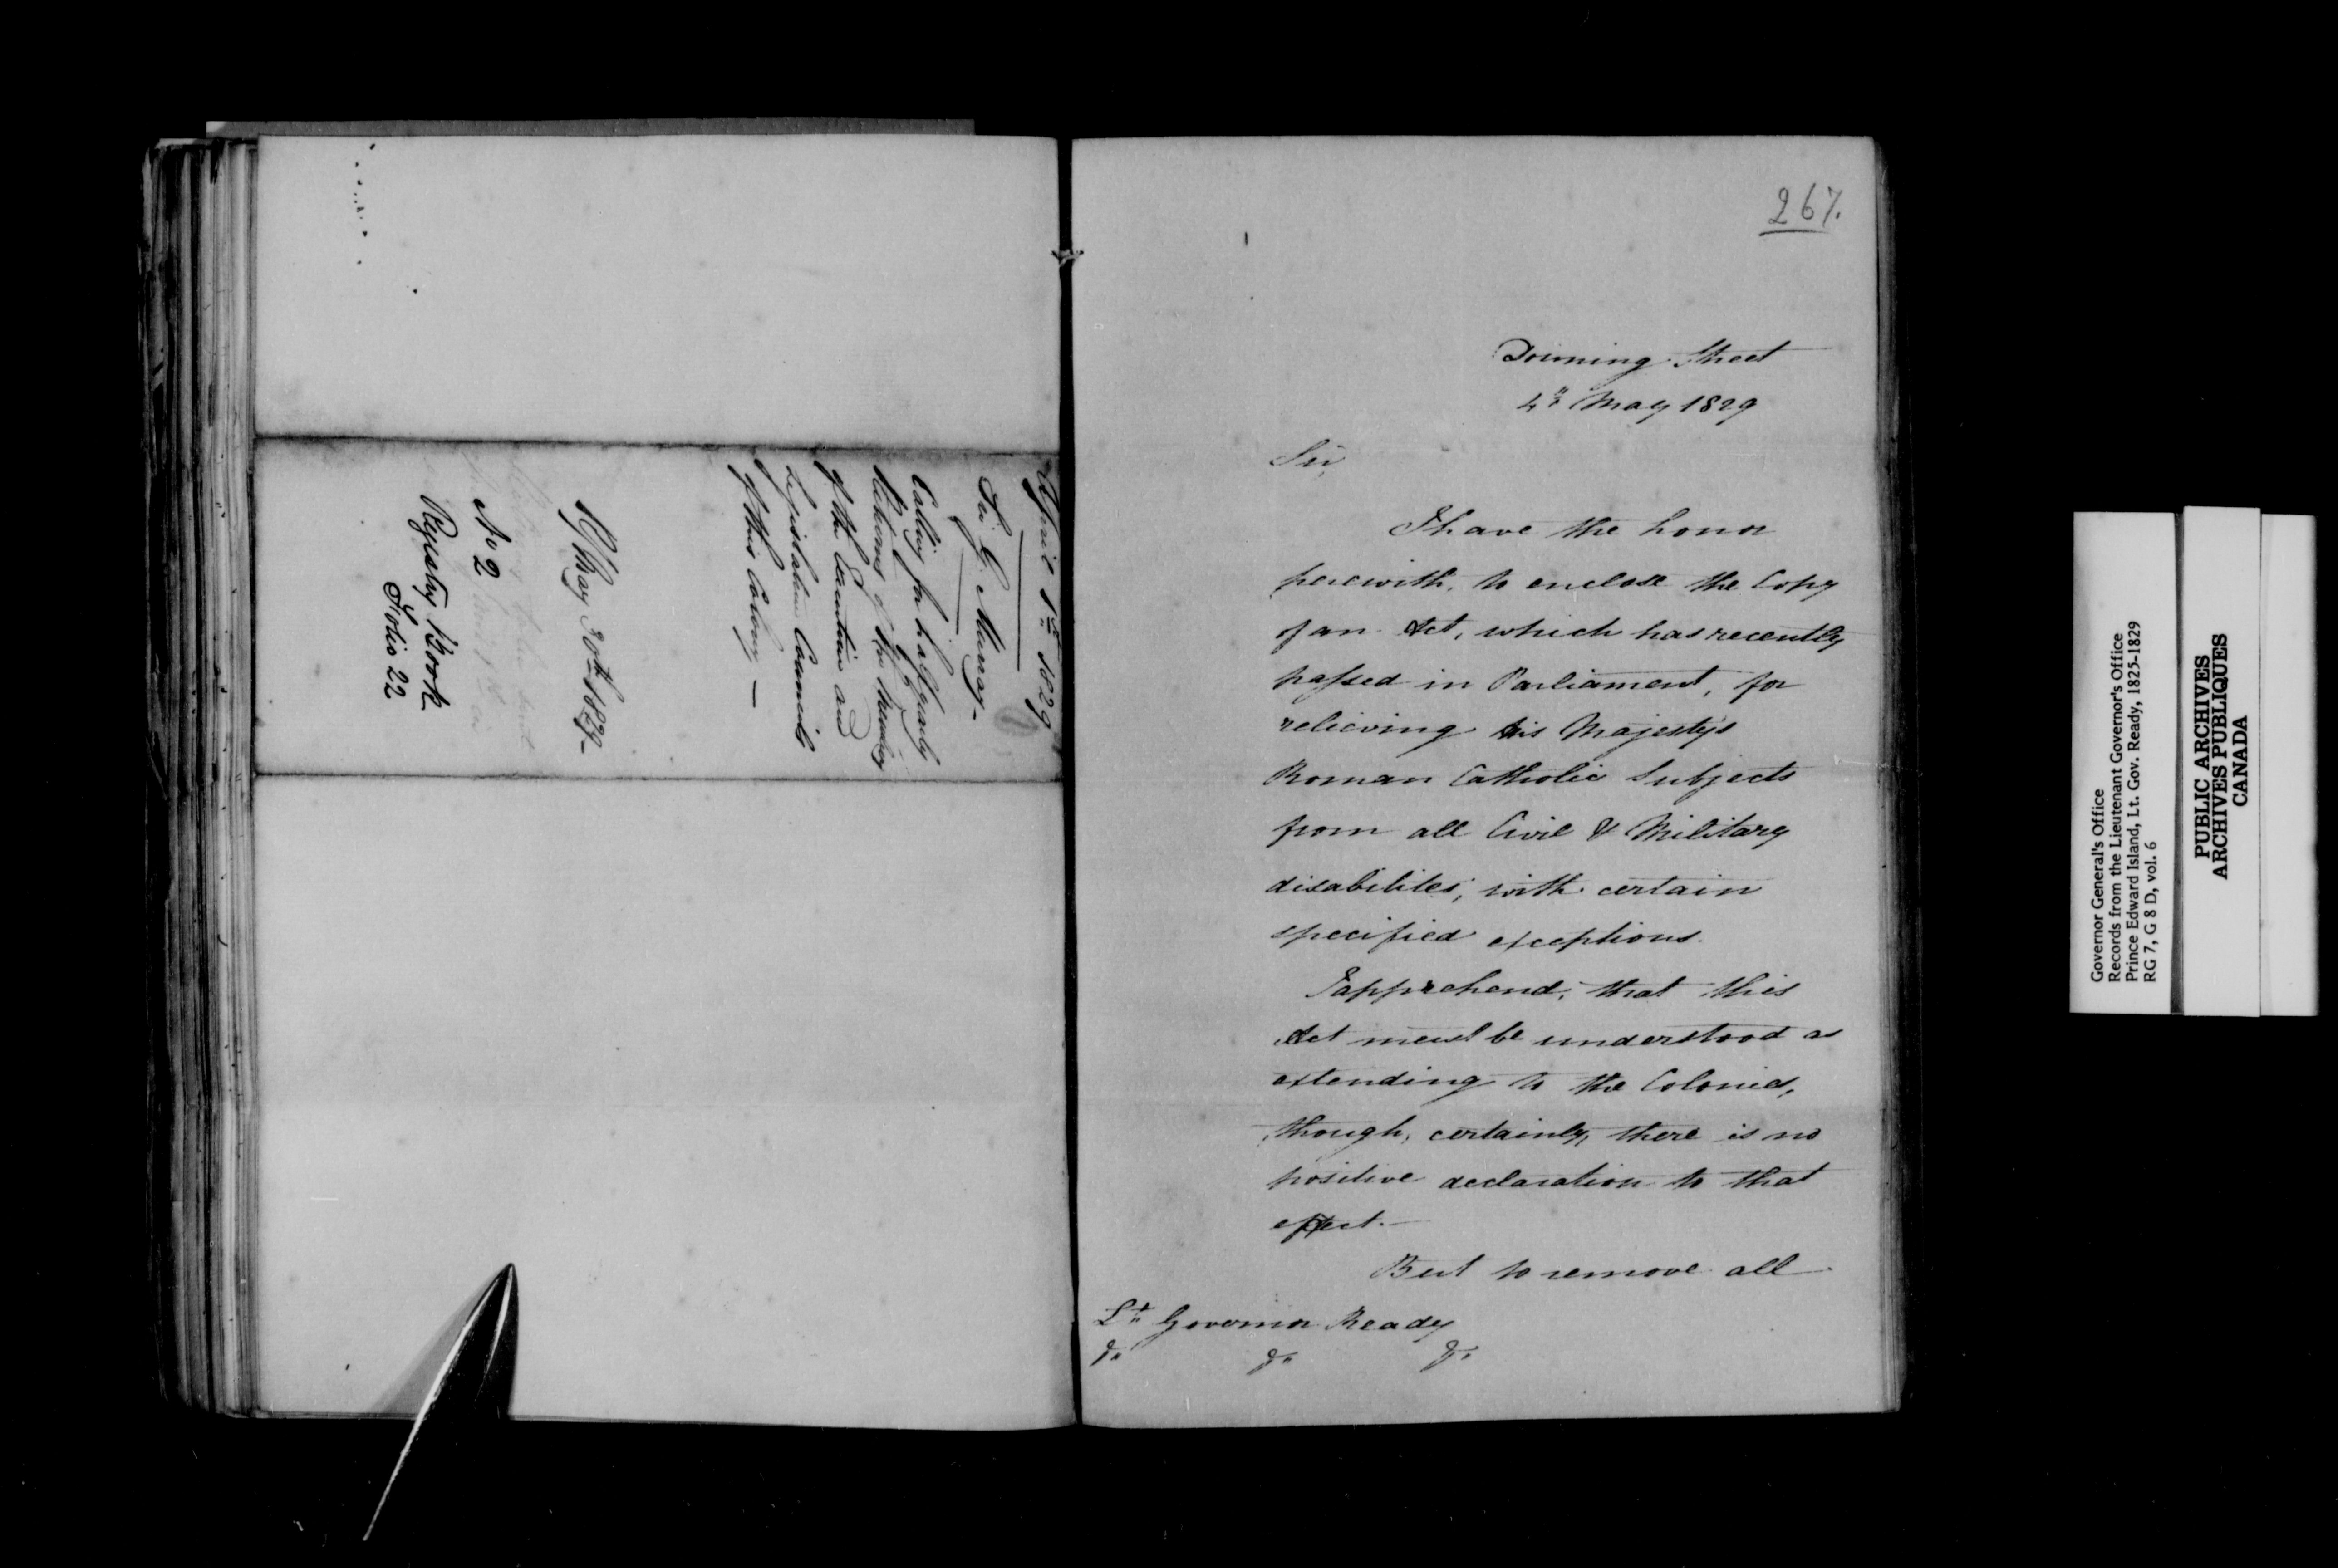 April 1st 1829
Sir G. Murray -
Calling for half yearly
Returns of the Meeting
of the Executive and
Legislative Councils
of this Colony —
May 30th 1829 -
No 2
Registry Book
Folio 22
267.
Downing Street
4th May 1829
Sir,
I have the honor
herewith, to enclose the Copy
of an Act, which has recently
passed in Parliament, for
relieving His Majesty's
Roman Catholic Subjects
from all Civil & Military
disabilites, with certain
specified exceptions.
I apprehend, that this
Act must be understood as
extending to the Colonies,
though, certainly, there is no
positive declaration to that
effect. —
But to remove all
Lt Governor Ready
&c &c &c
Governor General's Office
Records from the Lieutenant Governor's Office
Prince Edward Island, Lt. Gov. Ready, 1825-1829
RG 7, G 8 D, vol. 6
PUBLIC ARCHIVES
ARCHIVES PUBLIQUES
CANADA